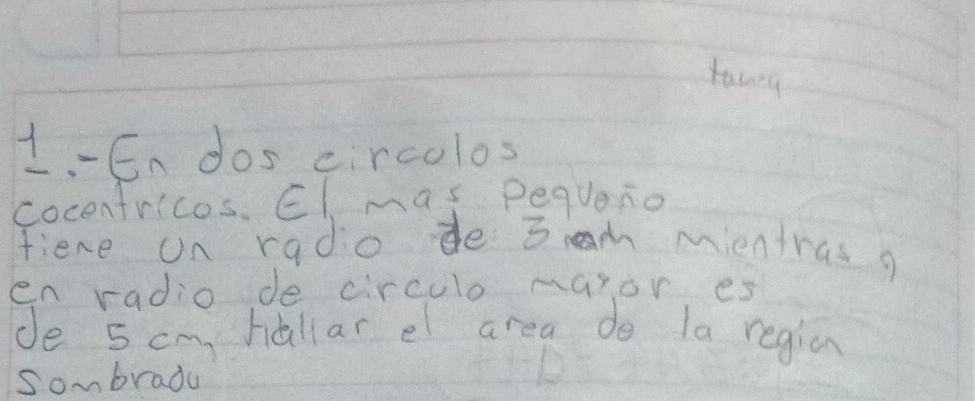 1.-En dos circulos
cocentricos. El mas pequeño
tiene un radio de 3 mientras,
en radio de circulo mayor es
de 5 cm, Hallar el area de la region
sombrada